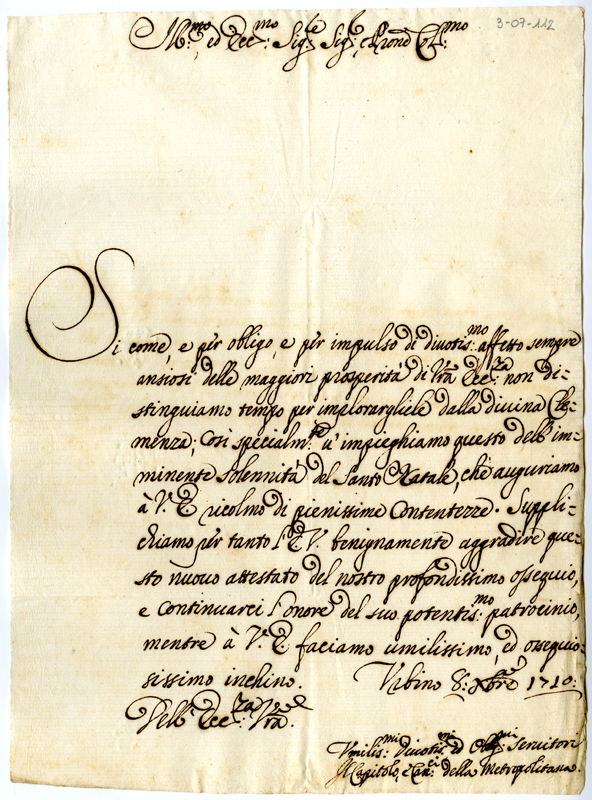 3-07-112
Ill.mo ed Ecc.mo Sig.re Sig.r, e Pron Col.mo
Si come, e per obligo, e per impulso di divotis.mo affetto sempre
ansiosi delle maggiori prosperità di Vra Ecc.za non di=
stinguiamo tempo per implorargliele dalla divina Cle=
menza; Così specialm.te v'impieghiamo questo dell'im=
minente solennità del Santo Natale, che auguriamo
à V. E. ricolmo di pienissime Contentezze. Suppli=
chiamo per tanto l'E. V. benignamente aggradire que=
sto nuovo attestato del nostro profondissimo ossequio,
e Continuarci l'onore del suo potentis.mo patrocinio,
mentre à V. E. faciamo umilissimo, ed ossequio=
sissimo inchino. Urbino 8: Xbre 1710:
Dell' Ecc.za Vra
Vmilis.mi Divotis.mi ed Obl.mi Servitori
Il Capitolo, e Can.ci della Metropolitana.